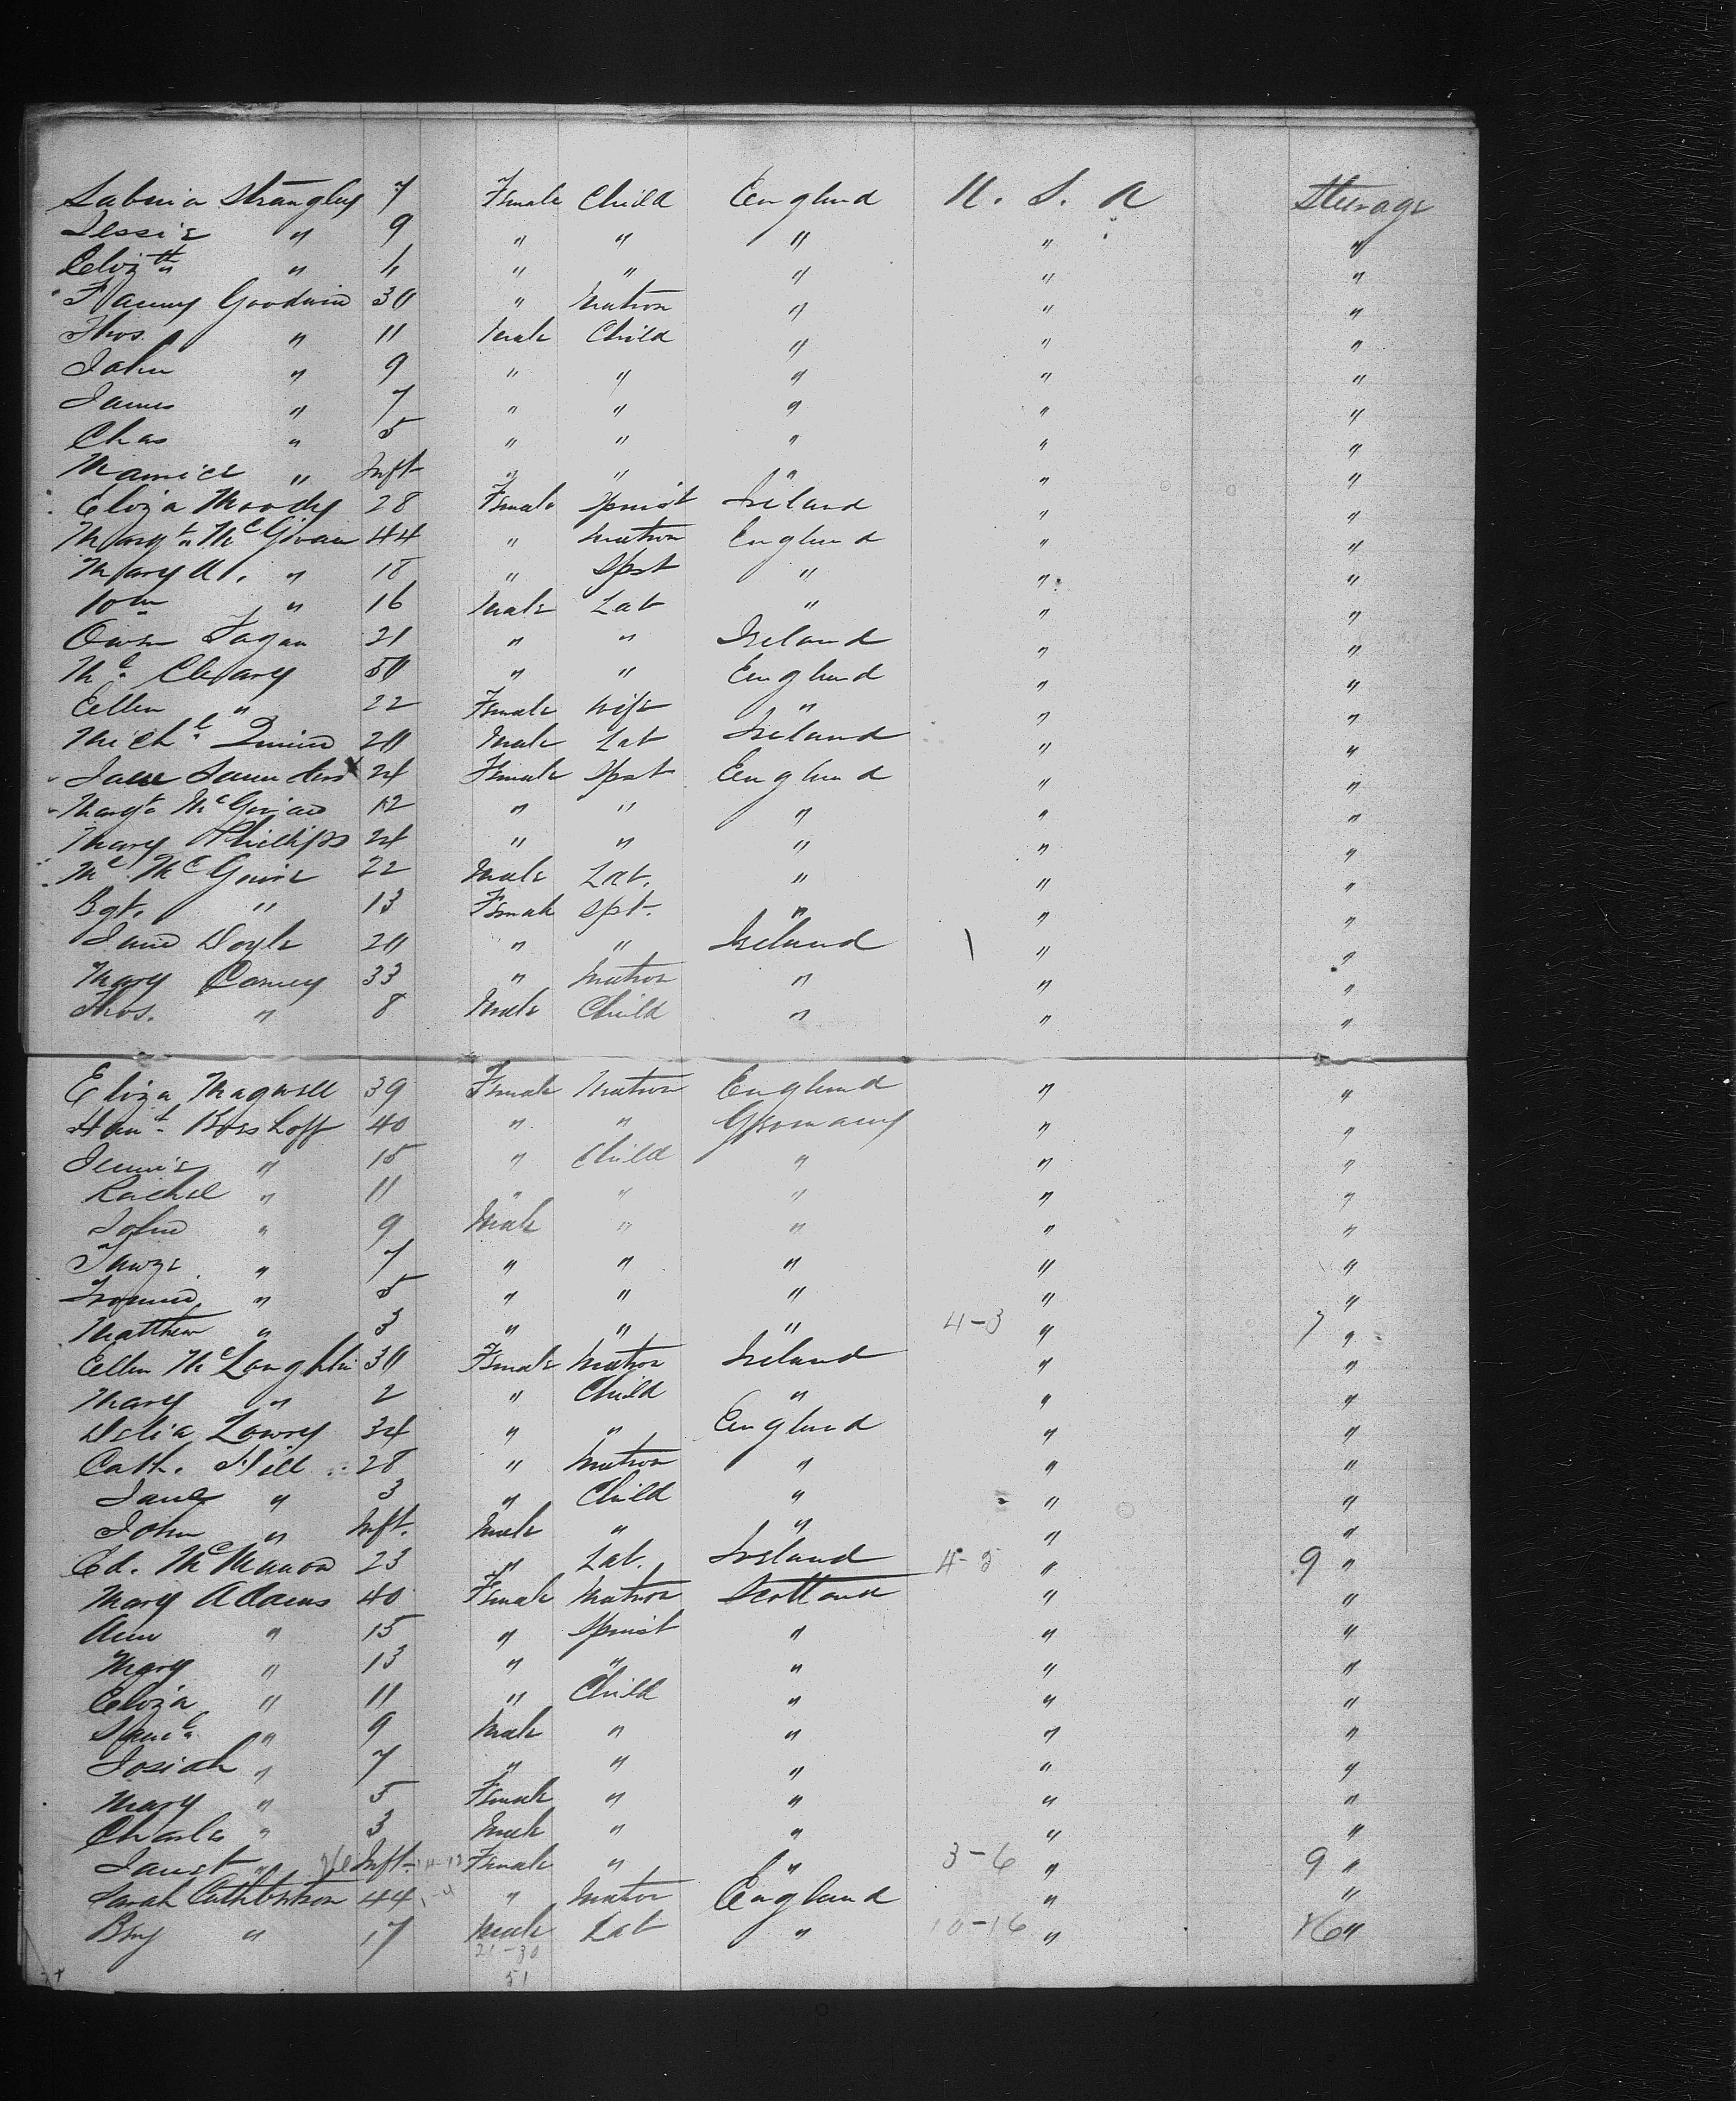 Sabina Strangley 7 Female Child England U. S. A Steerage
Jessie " 9 " " " " "
Elizth " " " " " "
Fanny Goodwin 30 " Matron " " "
Thos. " 11 Male Child " " "
John " 9 " " " " "
James " 7 " " " " "
Chas " 5 " " " " "
" Inft " " " " "
Eliza Moody 28 Female Spinst Ireland " "
Margt McGivan 44 " Matron England " "
Mary A. " 18 " Spst " " "
Wm " 16 Male Lab " " "
Owen Fagan 21 " " Ireland " "
Ml Cleary 50 " " England " "
Ellen " 22 Female Wife " " "
Michl 20 Male Lab Ireland " "
Jane Saunders x 24 Female Spst England " "
Margt 12 " " " " "
Mary Phillips 24 " " " " "
Ml McGuire 22 Male Lab. " " "
Bgt. " 13 Female Spst. " " "
Jane Doyle 20 " " Ireland " "
Mary Carney 33 " Matron " " "
Thos. " 8 Male Child " " "
Eliza Magwell 39 Female Matron England " "
40 " " Germany " "
Jennie " 15 " Child " " "
Rachel " 11 " " " " "
John " 9 Male " " " "
" 7 " " " " "
" 5 " " " " "
Matthew " 3 " " " 4-3 " 7 "
Ellen McLoughlin 30 Female Matron Ireland " "
Mary " 2 " Child " " "
Delia Lowry 34 " " England " "
Cath. Hill 28 " Matron " " "
Jane " 3 " Child " " "
John " Inft. Male " " " "
Ed. McManon 23 " Lab. Ireland 4-5 " 9 "
Mary Adams 40 Female Matron Scotland " "
Ann " 15 " Spinst " " "
Mary " 13 " " " " "
Eliza " 11 " Child " " "
Saml " 9 Male " " " "
Josiah " 7 " " " " "
Mary " 5 Female " " " "
Charles " 3 Male " " " "
Janet " Inft. Female " " 3-6 " 9 "
Sarah Cuthbertson 44 " Matron England " "
Benj " 17 Male Lab " 10-16 " 16 "
21-30
51